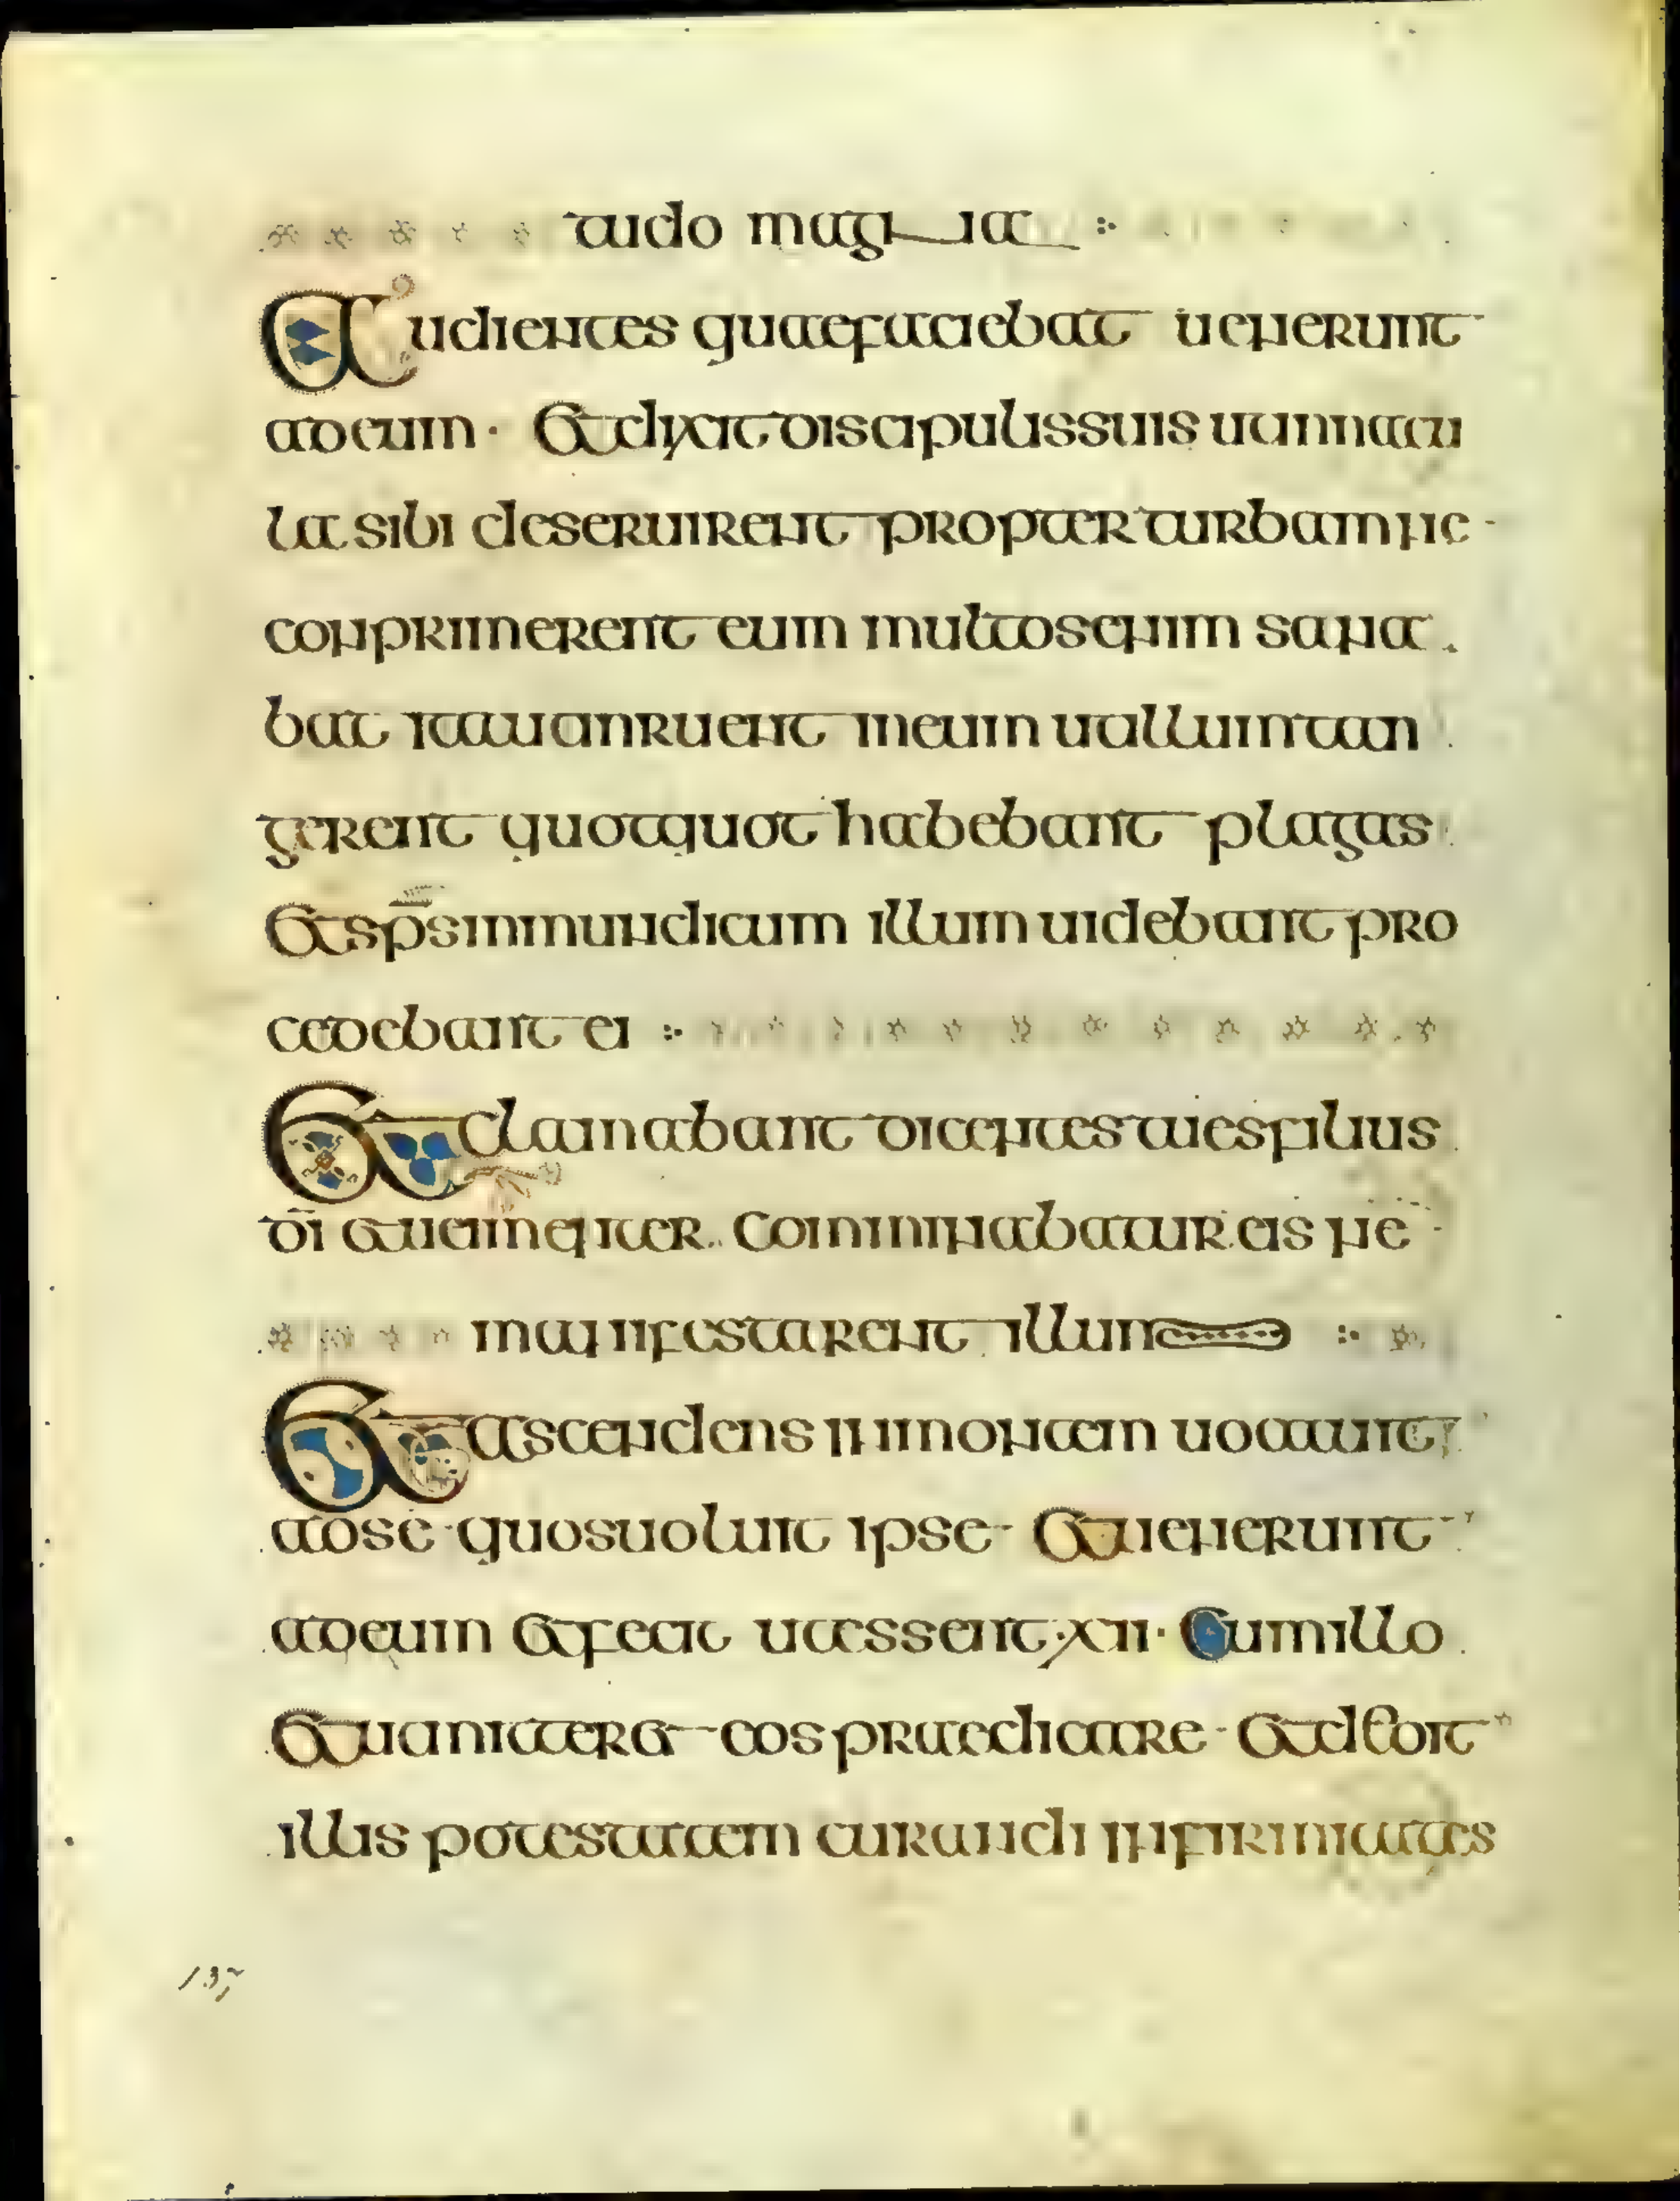 tudo magna
Audientes quae faciebat uenerunt
ad eum · Et dixit discipulis suis ut in naui
la sibi deseruirent propter turbam ne
conprimerent eum multos enim sana
bat ita ut inruerent in eum ut illum tan
gerent quotquot habebant plagas
Et sps inmundi cum illum uidebant pro
cedebant ei
Et clamabant dicentes tu es filius
di et uementer comminabatur eis ne
manifestarent illum
Et ascendens in montem uocauit
ad se quos uoluit ipse Et uenerunt
ad eum Et fecit ut essent · xii · Cum illo
Et ut mitteret eos praedicare Et dedit
illis potestatem curandi infirmitates
137